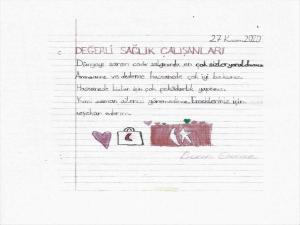 27 Kasım 2020
DEĞERLİ SAĞLIK ÇALIŞANLARI
Dünyayı saran salgında en çok sizler yoruldunuz.
Anneanne ve dedeme hastanede çok iyi baktınız.
Hastanede bizler için çok fedakarlık yaptınız.
zaman ailenizi göremediniz. Emekleriniz için
teşekkür ederim.